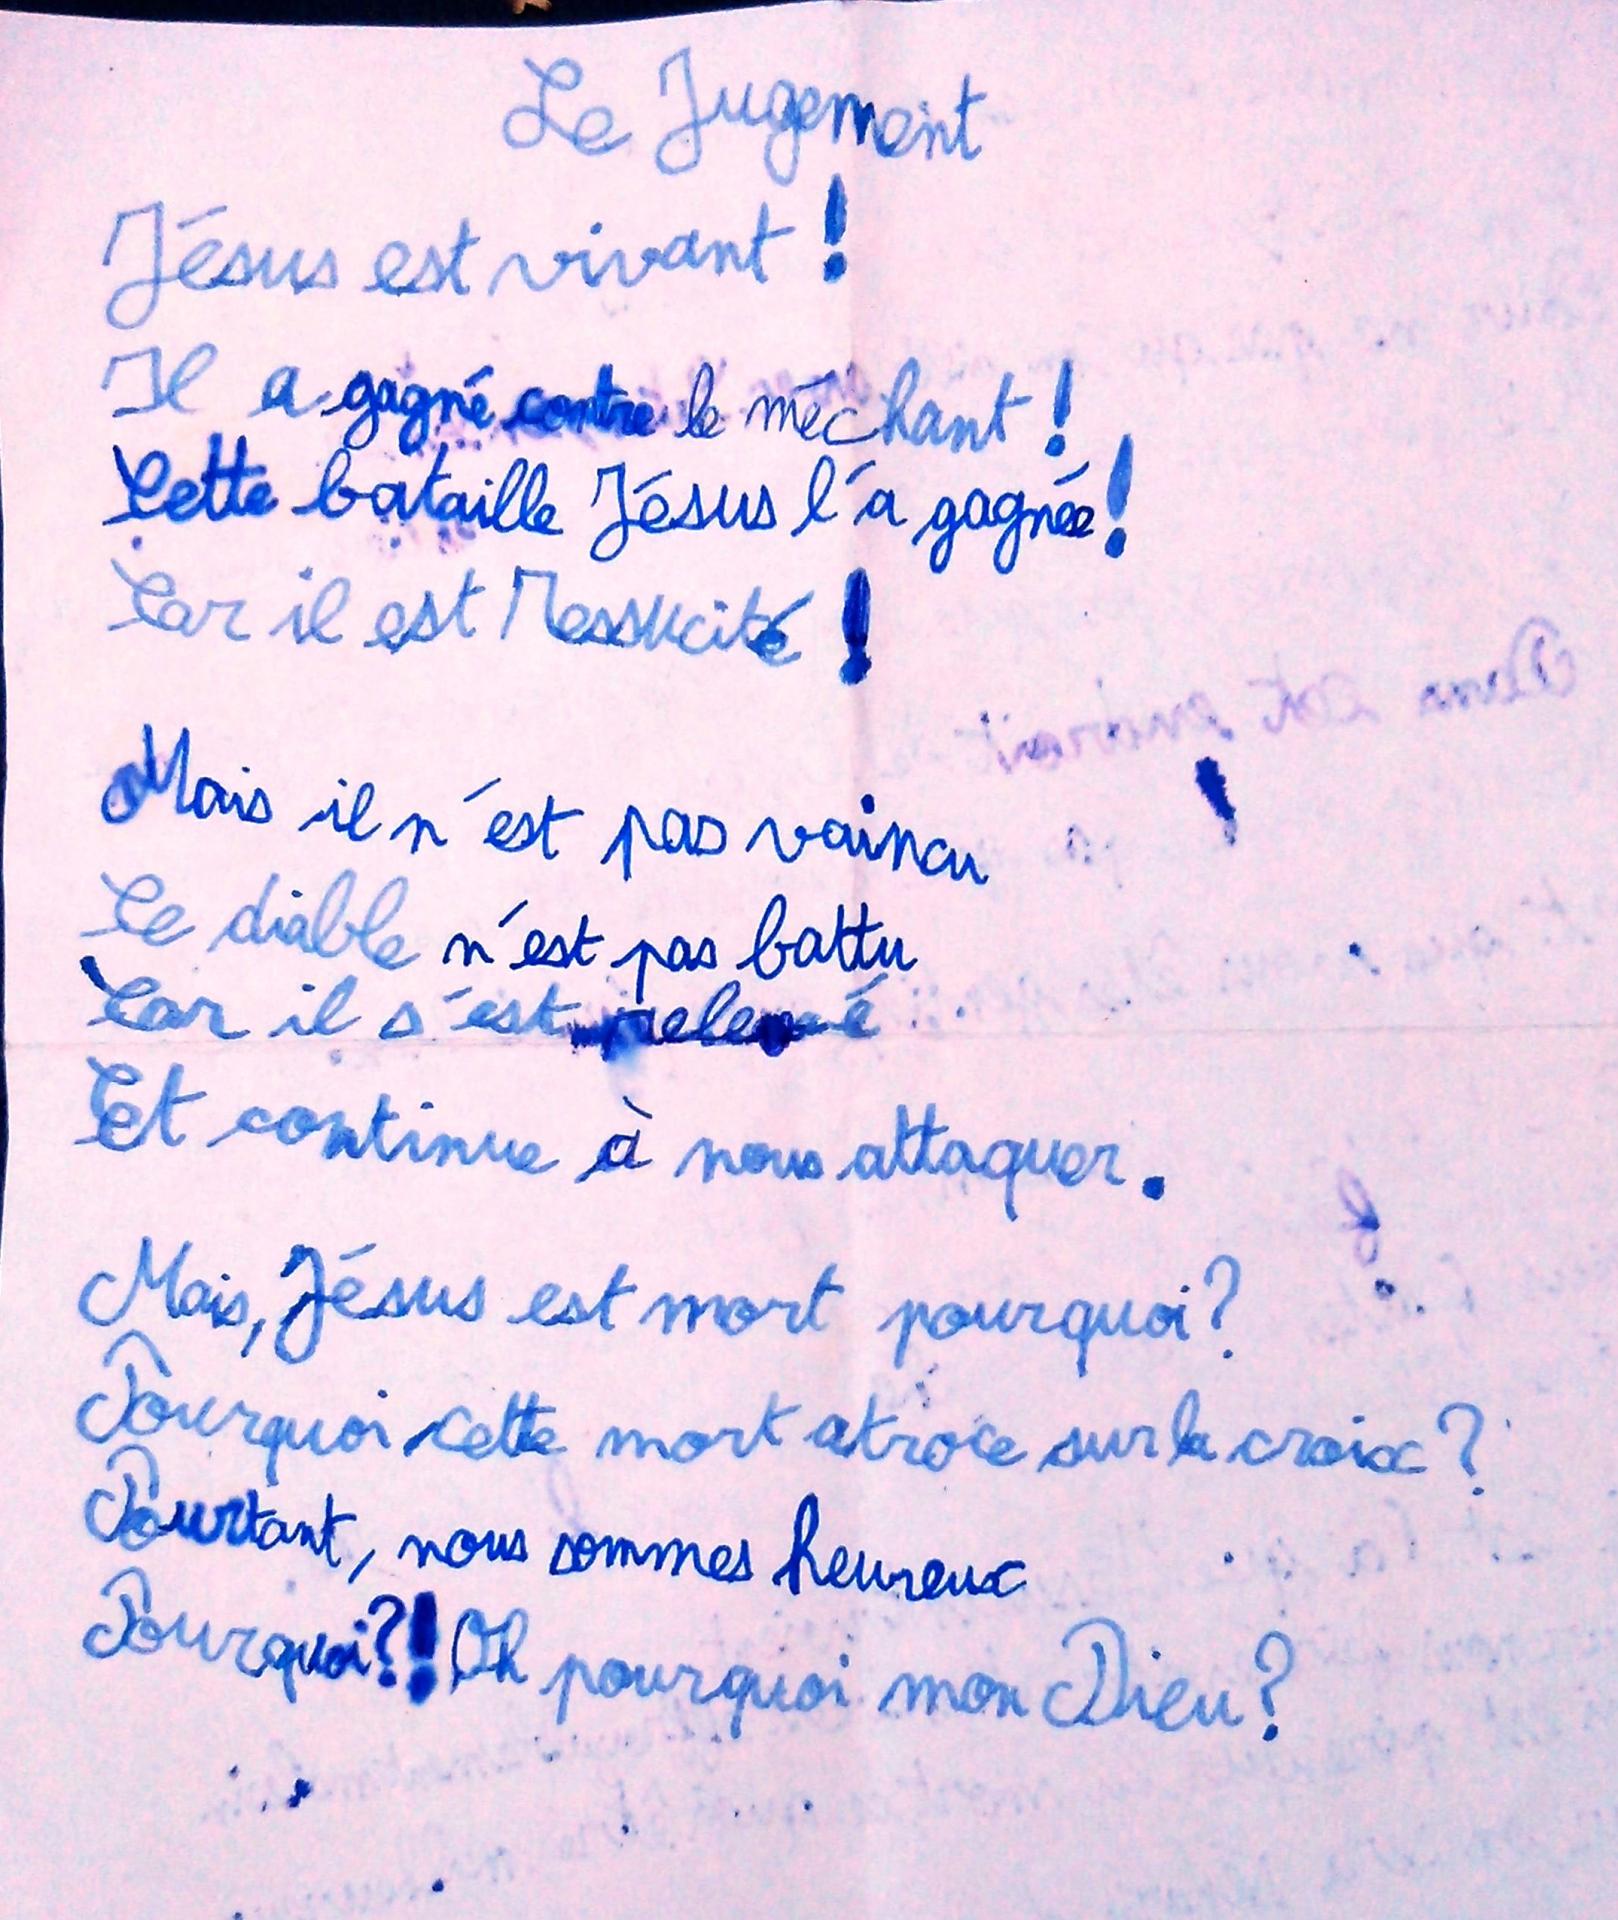 Le Jugement
Jésus est vivant !
Il a gagné contre le méchant !
Cette bataille Jésus l'a gagnée !
Car il est Ressucité !
Mais il n'est pas vaincu
Le diable n'est pas battu
Car il s'est relevé
Et continue à nous attaquer.
Mais, Jésus est mort pourquoi ?
Pourquoi cette mort atroce sur la croix ?
Pourtant, nous sommes heureux
Pourquoi ?! Oh pourquoi mon Dieu ?